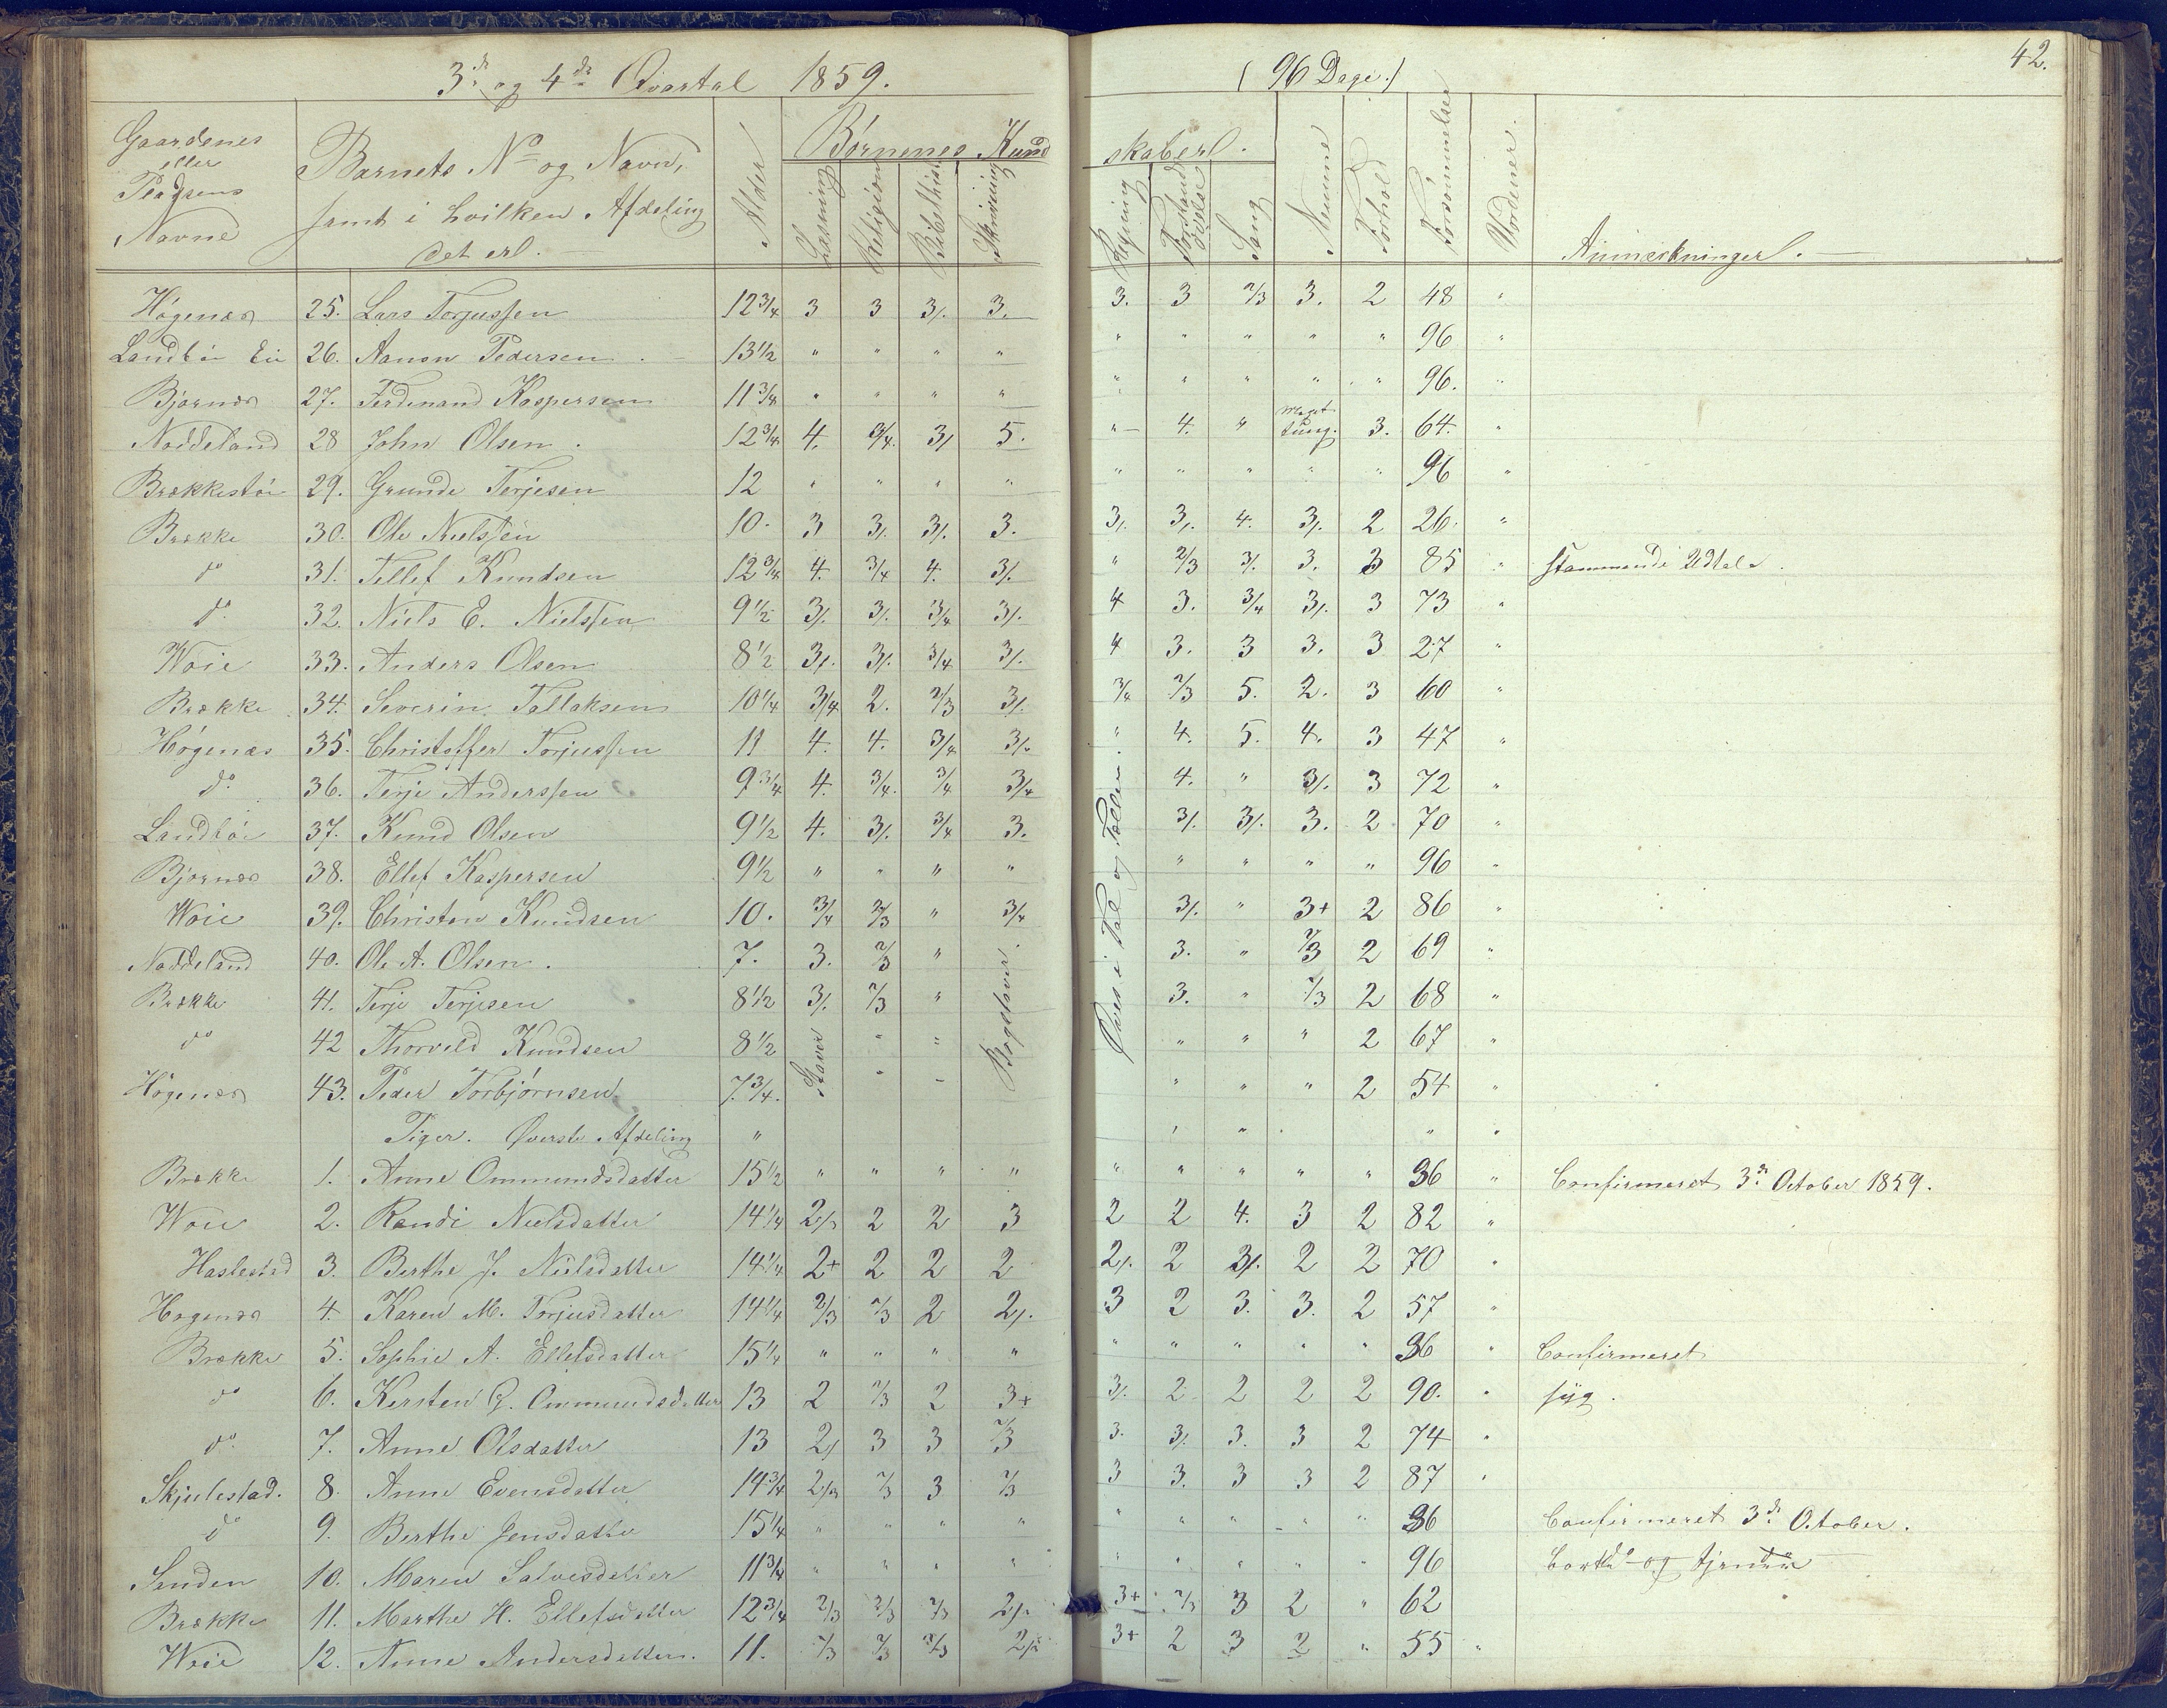 3die og 4de Qvartal 1859. (96 Dage.) 42.
Gaardenes eller Pladsens Navne | Barnets No og Navn, samt i hvilken Afdeling det er. | Alder | Børnenes Kundskaber. | Forhold | Forsømmelser | Vordener. | Anmærkninger.
Læsning | Religion | Bibelhist. | Skrivning | Regning | Forstandsøvelse | Sang | Nemme
Høgenæs 25. Lars Torjussen 12 3/4 3 3 3/. 3. 3. 3 2/3 3. 2 48 "
Landbøe Eie 26. Aanon Pedersen. 13 1/2 " " " " " " " " " 96 "
Bjørnæs 27. Ferdinand Kaspersen 11 3/4 " " " " " " " " " 96. "
Noddeland 28 John Olsen. 12 3/4 4. 3/4. 3/ 5. " 4. " meget tung. 3. 64. "
Brækkestøe 29. Grunde Terjesen 12 " " " " " " " " " 96 "
Brække 30. Ole Nielssen 10. 3 3/. 3/. 3. 3/. 3/. 4. 3/. 2 26. "
do 31. Tellef Knudsen 12 3/4 4. 3/4 4. 3/. " 2/3 3/. 3. 3 85 " stammende Udtale.
do 32. Niels E. Nielssen 9 1/2 3/. 3/. 3/4 3/. 4 3. 3/4 3/. 3 73 "
Woie 33. Anders Olsen 8 1/2 3/. 3/. 3/4 3/. 4 3. 3 3. 3 27 "
Brække 34. Severin Tallaksen 10 1/4 3/4 2. 2/3 3/. 3/4 2/3 5. 2. 3 60 "
Høgenæs 35. Christoffer Torjussen 11 4. 4. 3/4 3/. " 4. 5. 4. 3 47 "
do 36. Terje Anderssen 9 3/4 4. 3/4. 3/4 3/4 4. " 3/. 3 72 "
Landbøe 37. Knud Olsen 9 1/2 4. 3/. 3/4 3. 3/. 3/. 3. 2 70 "
Bjørnæs 38. Ellef Kaspersen 9 1/2 " " " " " " " " 96 "
Woie 39. Christen Knudsen 10. 3/4 2/3 " 3/4 3/. " 3+ 2 86 "
Noddeland 40. Ole A. Olsen. 7. 3. 2/3 " 3. " 2/3 2 69 "
Brække 41. Terje Terjesen 8 1/2 3/. 2/3 " 3. " 2/3 2 68 "
do 42 Thorvild Knudsen 8 1/2 Staver " " Bogstaver. " " " 2 67 "
Høgenæs 43. Peder Torbjørnsen 7 3/4. " " " " " 2 54 "
Øves i Tal og Tabellen.
Piger. Øverste Afdeling "
Brække 1. Anne Ommundsdatter 15 1/2 " " " " " " " " " 36 " Confirmeret 3de October 1859.
Woie 2. Randi Nielsdatter 14 1/4 2/3 2 2 3 2 2 4. 3 2 82 "
Haslestad 3. Berthe J. Nielsdatter 14 1/4 2+ 2 2 2 2/. 2 3/. 2 2 70 "
Høgenæs 4. Karen M. Torjusdatter 14 1/4 2/3 2/3 2 2/. 3 2 3. 3. 2 57 "
Brække 5. Sophie A. Ellefsdatter 15 1/4 " " " " " " " " " 36 " Confirmeret
do 6. Kersten G. Ommundsdatter 13 2 2/3 2 3+ 3/. 2 2 2 2 90. " syg.
do 7. Anne Olsdatter 13 2/ 3 3 2/3 3. 3/. 3. 3 2 74 "
Skjulestad. 8. Anne Evensdatter 14 3/4 2/3 2/3 3 2/3 3 3. 3 3 2 87 "
do 9. Berthe Jensdatter 15 1/4 " " " " " " " " " 36 Confirmeret 3de October.
Senden 10. Maren Salvesdatter 11 3/4 " " " " " " " " 96
Brække 11. Marthe H. Ellefsdatter 12 3/4 2/3 2/3 2/3 2/. 3+ 2/3 3 2 " 62
Woie 12. Anne Andersdatter. 11. 2/3 2/3 2/3 2/. 3+ 2 3 2 " 55 "